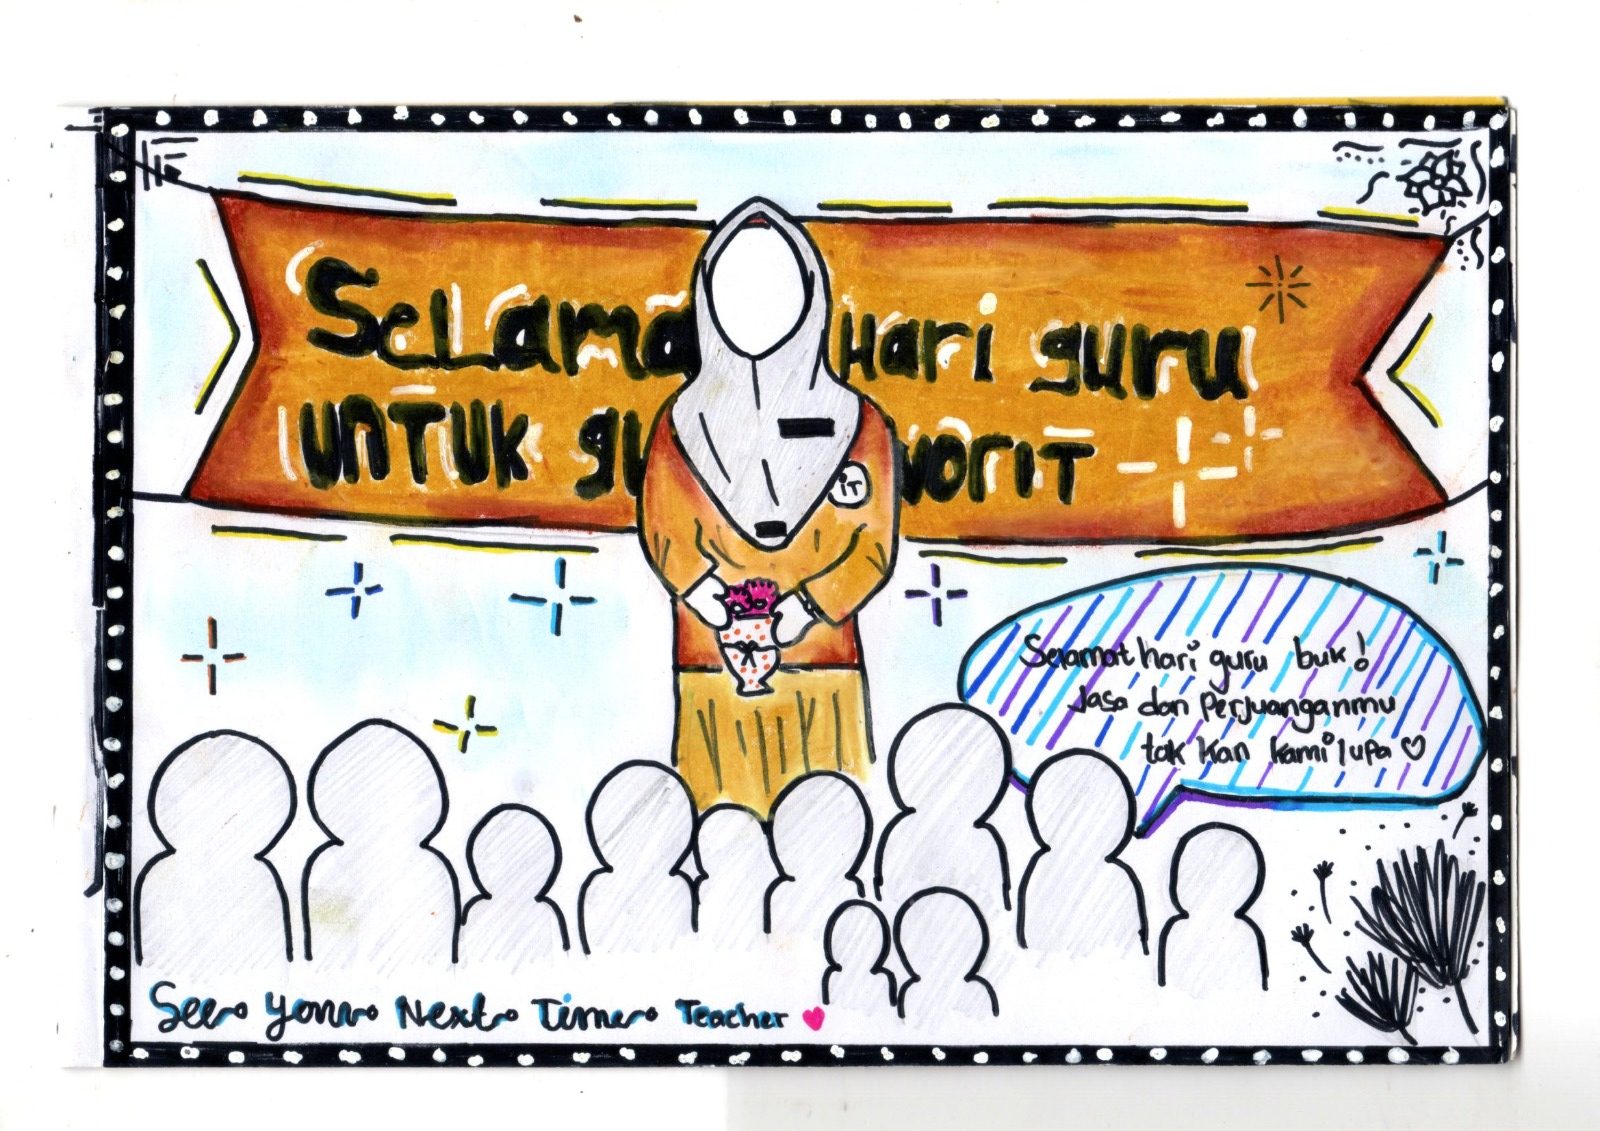 SeLama Hari guru
UNTUK gu vorIT
iT
Selamat hari guru buk!
Jasa dan Perjuanganmu
tak kan kami lupa
See You Next Time Teacher